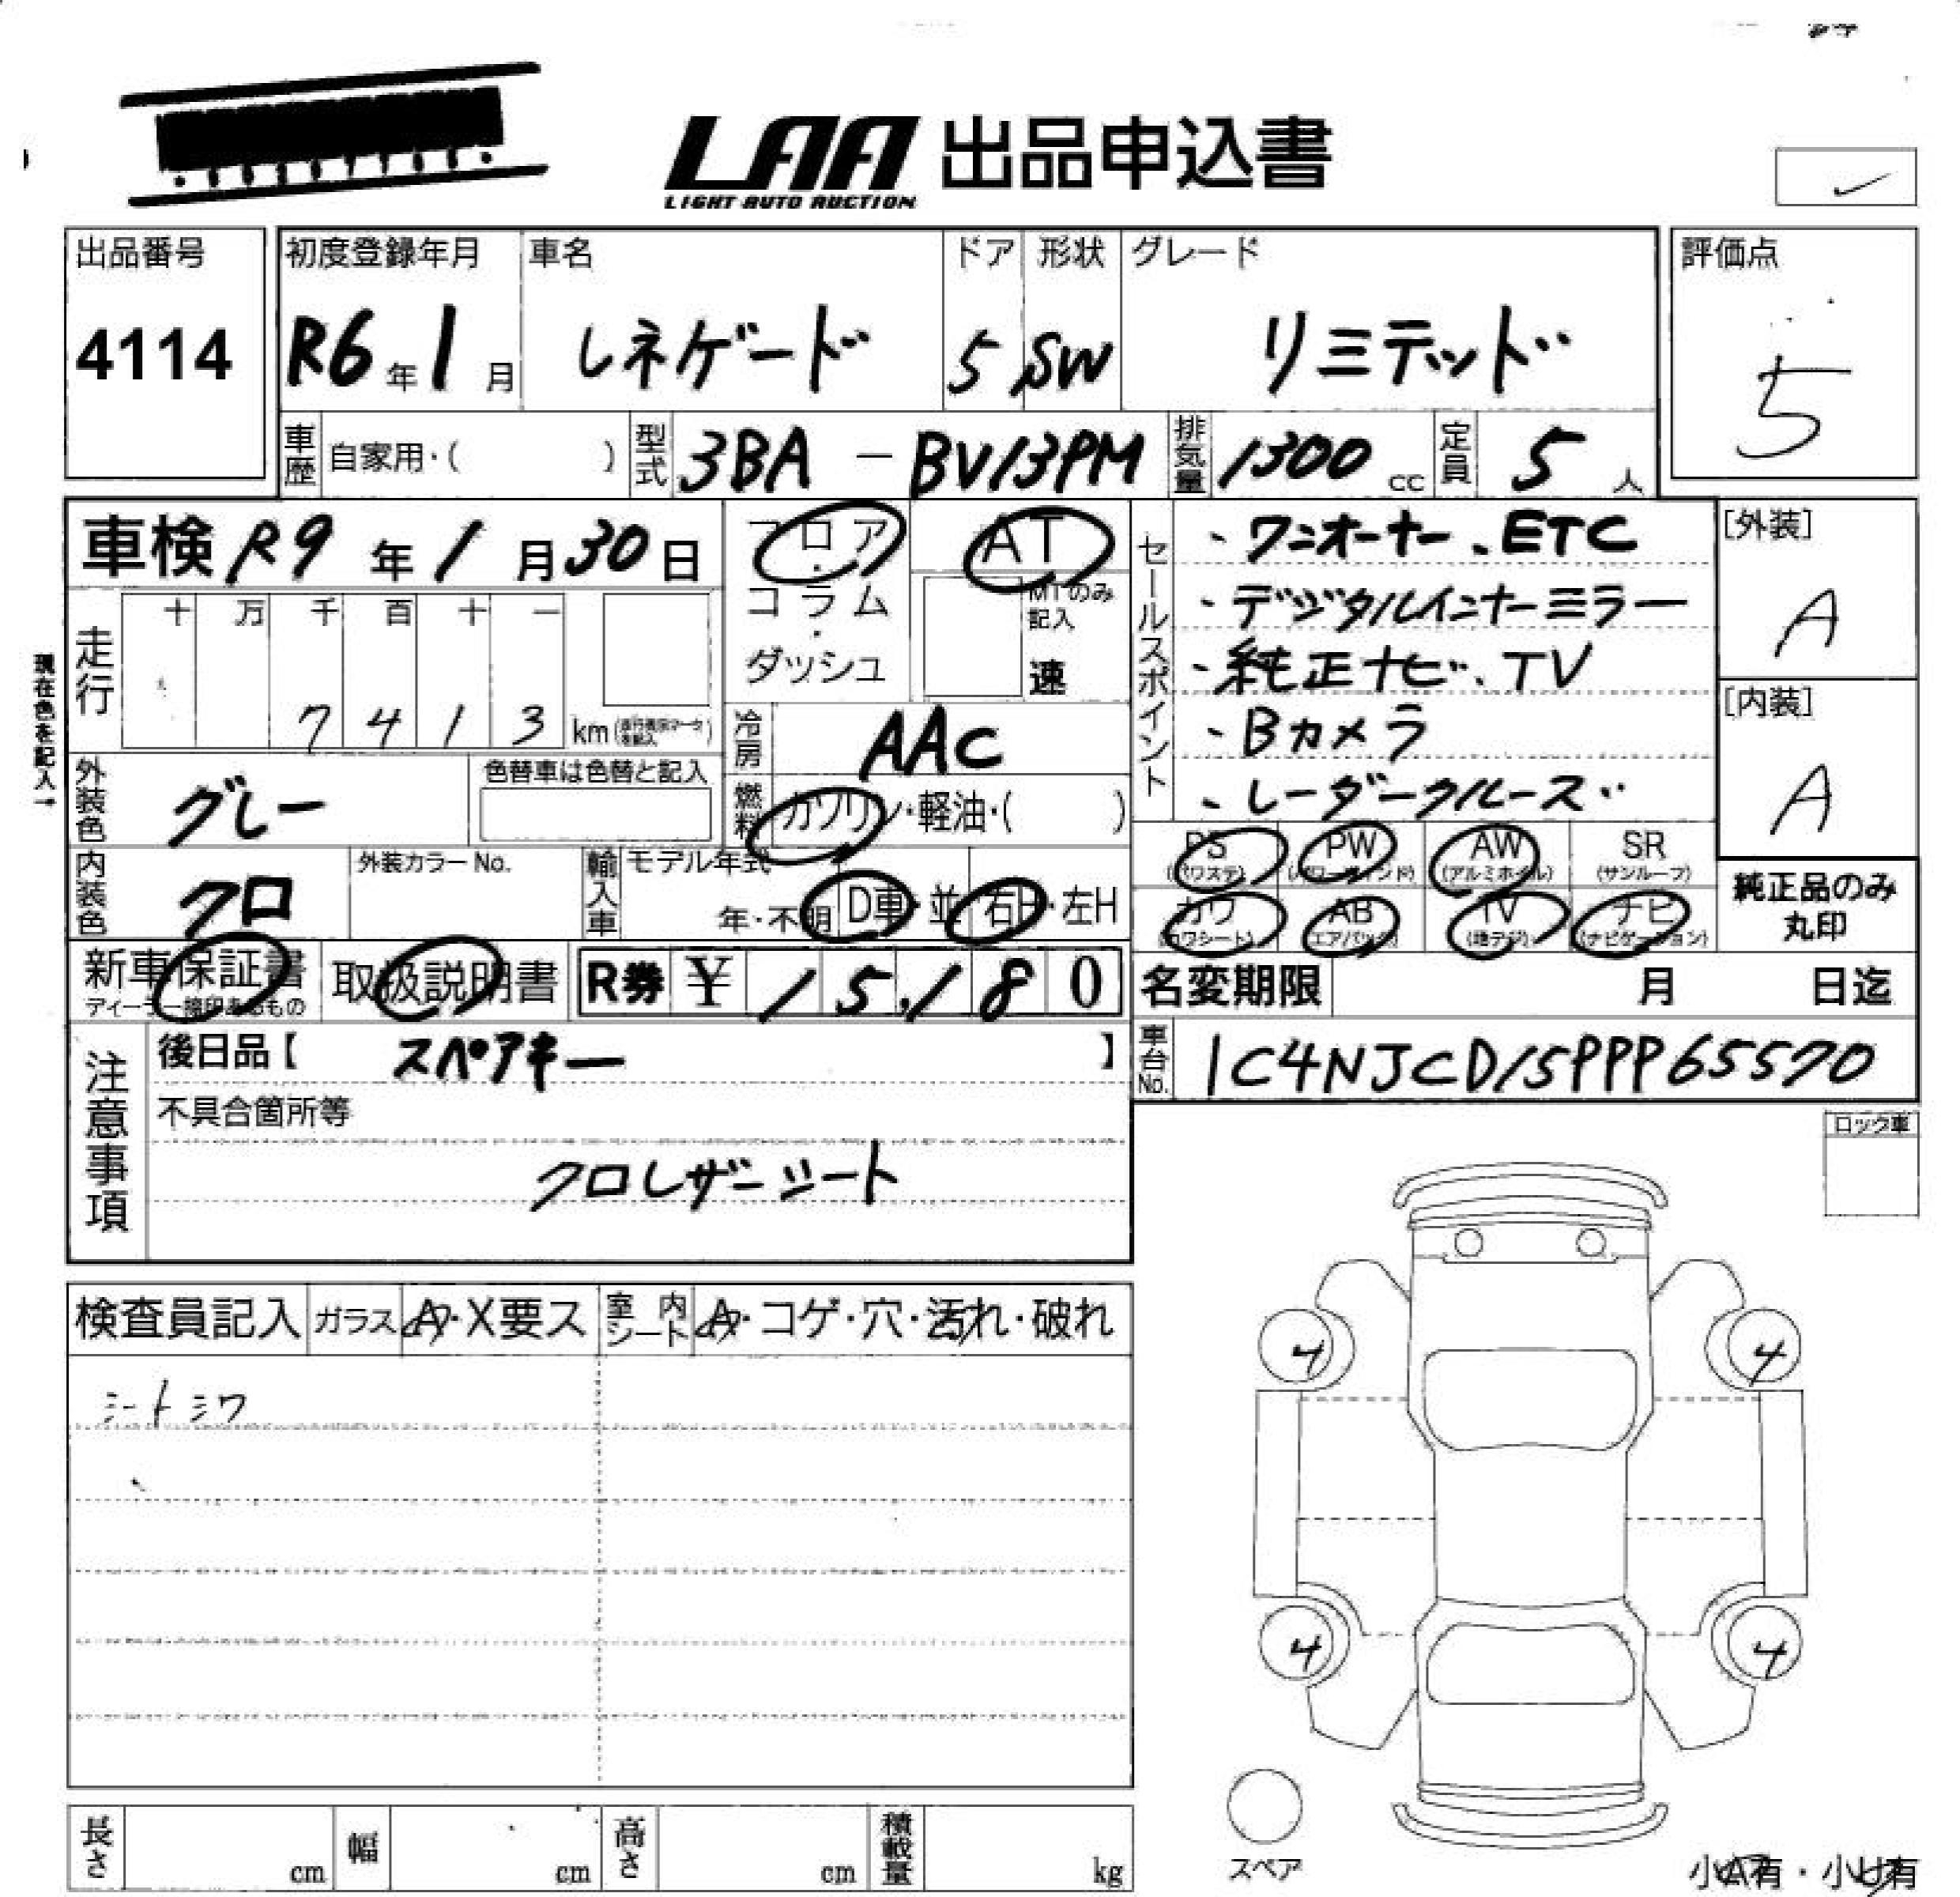 LAA 出品申込書
LIGHT AUTO AUCTION
出品番号
4114
初度登録年月
R6年1月
車名
レネゲード
ドア
5
形状
SW
グレード
リミテッド
評価点
5
車歴 自家用・( )
型式 3BA - BV13PM
排気量 1300 cc
定員 5 人
車検 R9年1月30日
フロア・コラム・ダッシュ
AT
MTのみ記入
速
走行
十 万 千 百 十 一
7 4 1 3 km
現在色を記入→
冷房 AAC
燃料 ガソリン・軽油・( )
外装色 グレー
色替車は色替と記入
内装色 クロ
外装カラーNo.
輸入車 モデル年式
年・不明 D車・並 右H・左H
セールスポイント
・ワンオーナー、ETC
・デジタルインナーミラー
・純正ナビ、TV
・Bカメラ
・レーダークルーズ
[外装]
A
[内装]
A
PS (パワステ)
PW (パワーウインド)
AW (アルミホイル)
SR (サンルーフ)
カワ (カワシート)
AB (エアバック)
TV (地デジ)
ナビ (ナビゲーション)
純正品のみ
丸印
新車保証書
ディーラー捺印あるもの
取扱説明書
R券 ¥ 15,180
名変期限 月 日迄
車台No. 1C4NJCD15PPP65570
注意事項
後日品【 スペアキー 】
不具合箇所等
クロレザーシート
ロック車
検査員記入
ガラス A・X要ス
室内シート A・コゲ・穴・汚れ・破れ
シートシワ
4
4
4
4
スペア
長さ cm
幅 cm
高さ cm
積載量 kg
小A有・小U有